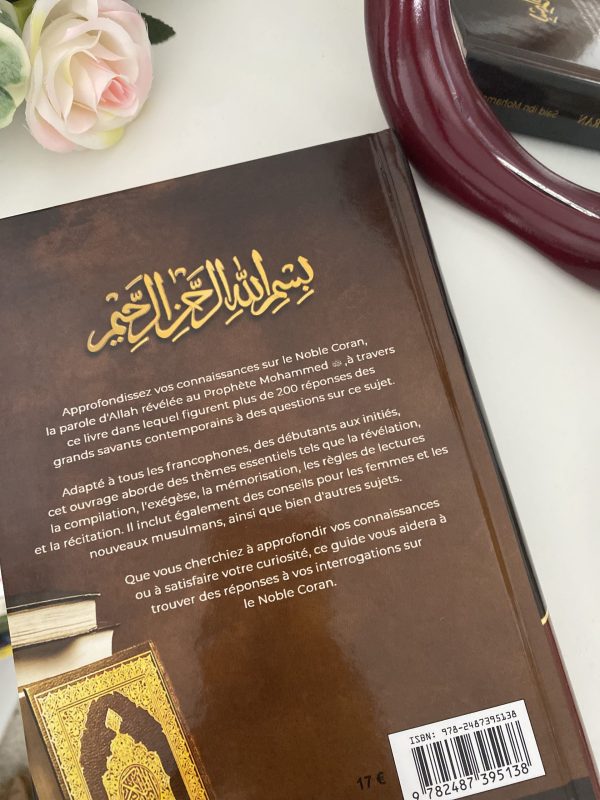 Saïd Ibn Mohamed
بِسْمِ اللَّهِ الرَّحْمَنِ الرَّحِيمِ
Approfondissez vos connaissances sur le Noble Coran,
la parole d'Allah révélée au Prophète Mohammed ﷺ ,à travers
ce livre dans lequel figurent plus de 200 réponses des
grands savants contemporains à des questions sur ce sujet.
Adapté à tous les francophones, des débutants aux initiés,
cet ouvrage aborde des thèmes essentiels tels que la révélation,
la compilation, l'exégèse, la mémorisation, les règles de lectures
et la récitation. Il inclut également des conseils pour les femmes et les
nouveaux musulmans, ainsi que bien d'autres sujets.
Que vous cherchiez à approfondir vos connaissances
ou à satisfaire votre curiosité, ce guide vous aidera à
trouver des réponses à vos interrogations sur
le Noble Coran.
17 €
ISBN: 978-2487395138
9 782487 395138